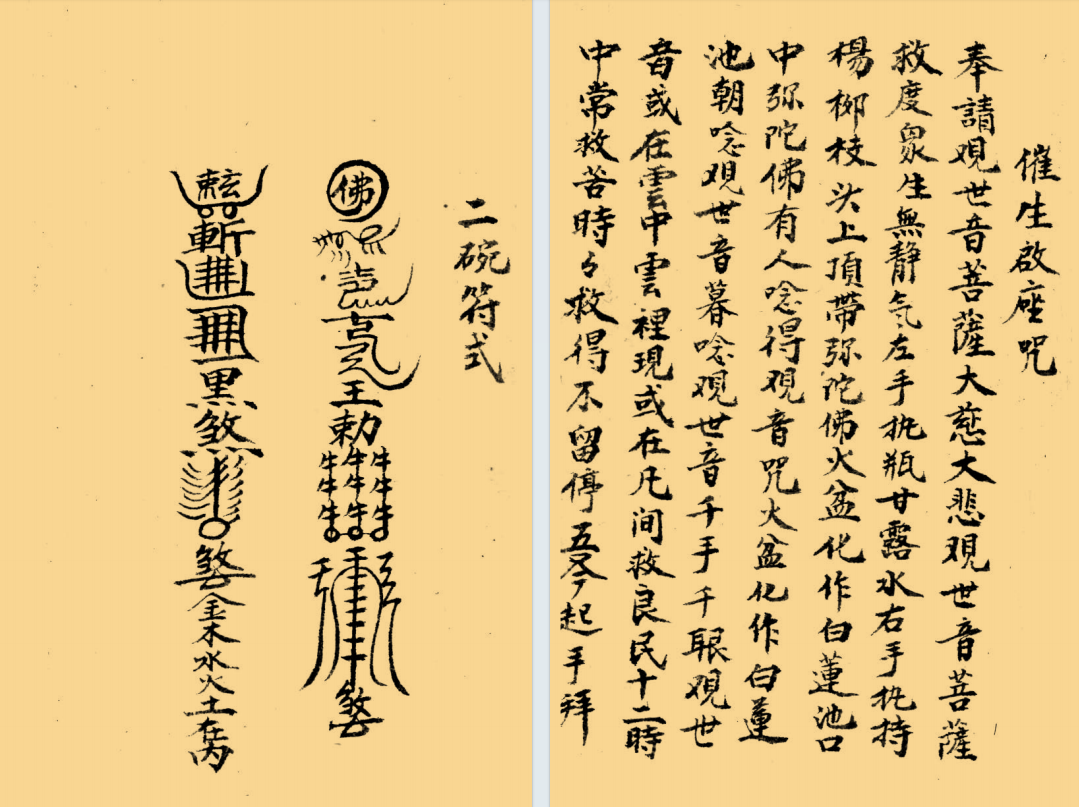 催生啟座咒
奉請观世音菩薩大慈大悲观世音菩薩
救度眾生無静氣左手执瓶甘露水右手执持
楊柳枝头上頂帶弥陀佛火盆化作白蓮池口
中弥陀佛有人唸得观音咒火盆化作白蓮
池朝唸观世音暮唸观世音千手千眼观世
音或在雲中雲裡現或在凡间救良民十二時
中常救苦時々救得不留停起手拜
二碗符式
佛
王勅
牛牛牛牛牛牛牛牛牛
煞
斬
黑煞
煞金木水火土在内